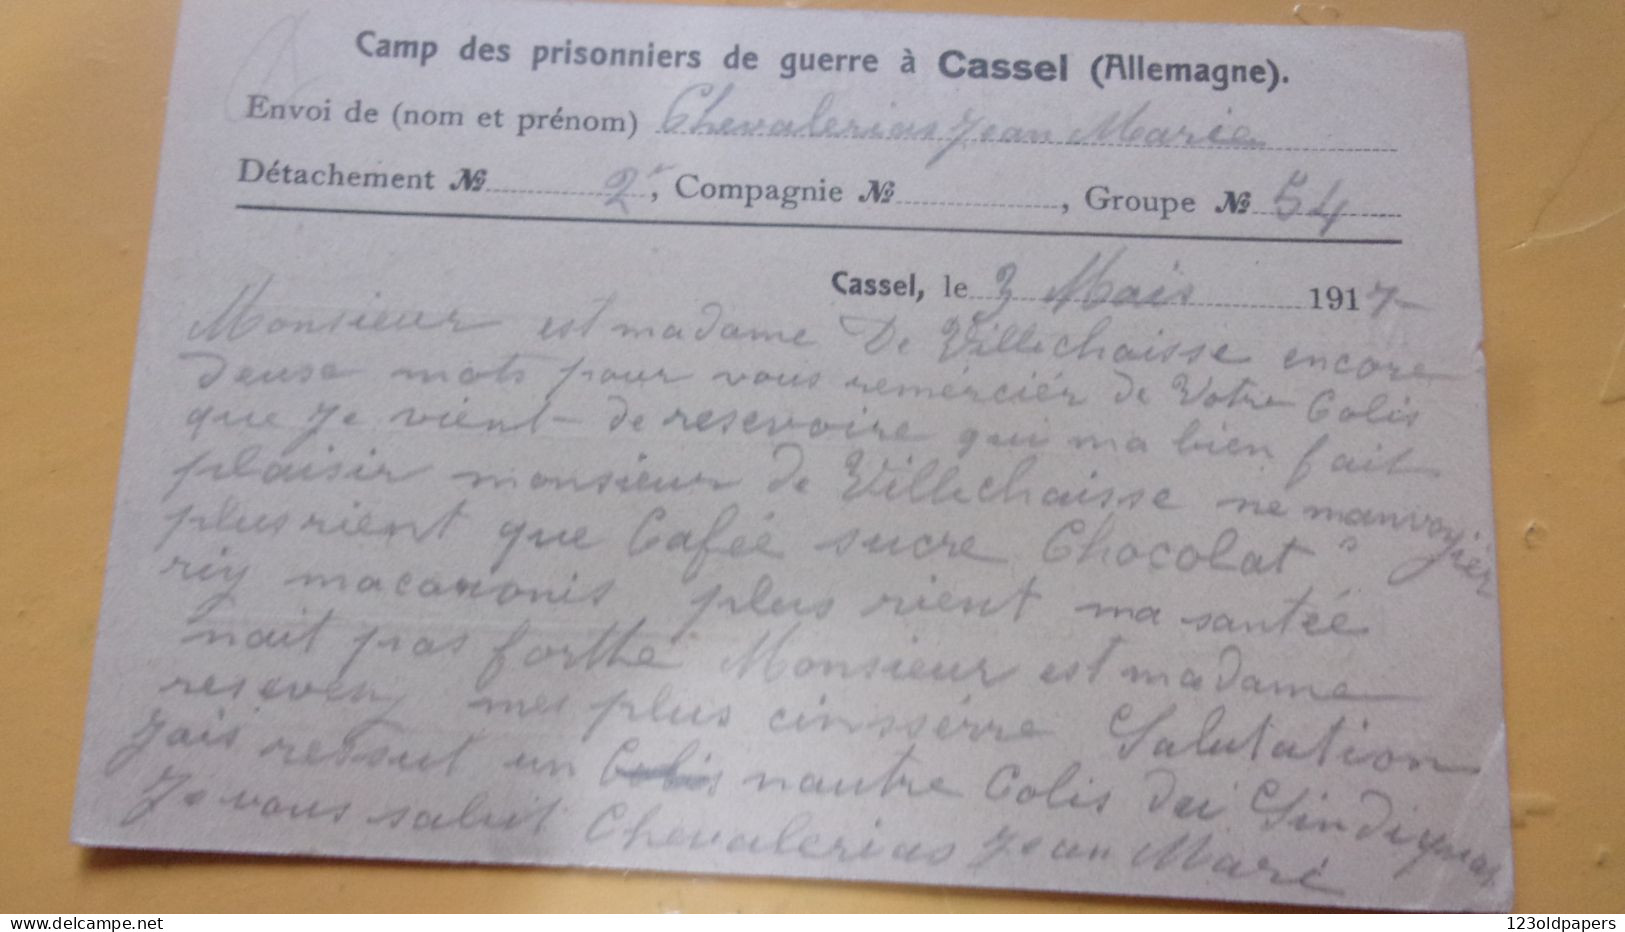 Camp des prisonniers de guerre à Cassel (Allemagne).
Envoi de (nom et prénom) Chevalerias Jean Marie
Détachement № 2, Compagnie №, Groupe № 54
Cassel, le 3 Mais 1917
Monsieur est madame De Villechaisse encore
deuse mots pour vous remérciér de Votre Colis
que je vient de resevoire qui ma bien fait
plaisir monsieur de Villechaisse ne manvoyiér
plus rient que Cafée sucre Chocolat
riy macaronis plus rient ma santée
nait pas forthe Monsieur est madame
reseven mes plus cinssérre Salutation
jais ressut un nautre Colis dui Sindiquas
Je vous salut Chevalerias Jean Marè
123oldpapers